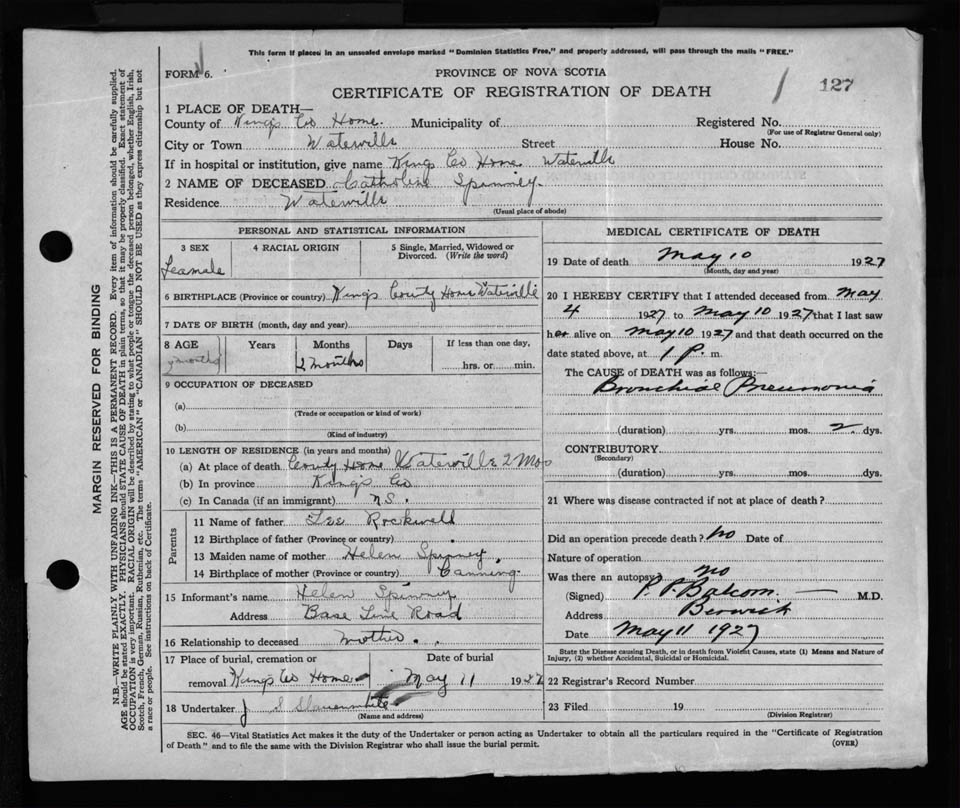 This form if placed in an unsealed envelope marked "Dominion Statistics Free," and properly addressed, will pass through the mails "FREE."
FORM 6.
PROVINCE OF NOVA SCOTIA
127
CERTIFICATE OF REGISTRATION OF DEATH
1 PLACE OF DEATH—
County of Kings Co Home. Municipality of Registered No.
(For use of Registrar General only)
City or Town Waterville Street House No.
If in hospital or institution, give name Kings Co Home Waterville
2 NAME OF DECEASED Catholine Spinney.
Residence Waterville
(Usual place of abode)
PERSONAL AND STATISTICAL INFORMATION
3 SEX 4 RACIAL ORIGIN 5 Single, Married, Widowed or Divorced. (Write the word)
Feamale
6 BIRTHPLACE (Province or country) Kings County Home Waterville
7 DATE OF BIRTH (month, day and year)
8 AGE Years Months Days If less than one day,
2 months hrs. or min.
9 OCCUPATION OF DECEASED
(a)
(Trade or occupation or kind of work)
(b)
(Kind of industry)
10 LENGTH OF RESIDENCE (in years and months)
(a) At place of death County Home Waterville 2 Mos
(b) In province Kings Co
(c) In Canada (if an immigrant) N.S.
Parents
11 Name of father Lee Rockwell
12 Birthplace of father (Province or country)
13 Maiden name of mother Helen Spinney.
14 Birthplace of mother (Province or country) Canning
15 Informant's name Helen Spinney
Address Base Line Road
16 Relationship to deceased mother
17 Place of burial, cremation or Date of burial
removal Kings Co Home May 11 1927
18 Undertaker J S
(Name and address)
MEDICAL CERTIFICATE OF DEATH
19 Date of death May 10 1927
(Month, day and year)
20 I HEREBY CERTIFY that I attended deceased from May
4 1927 to May 10 1927 that I last saw
her alive on May 10 1927 and that death occurred on the
date stated above, at 1 P. m.
The CAUSE of DEATH was as follows:—
Bronchial Pneumonia
(duration) yrs. mos. 2 dys.
CONTRIBUTORY
(Secondary)
(duration) yrs. mos. dys.
21 Where was disease contracted if not at place of death?
Did an operation precede death? No Date of
Nature of operation
Was there an autopsy? No
(Signed) P. P. Balcom — M.D.
Address Berwick
Date May 11 1927
State the Disease causing Death, or in death from Violent Causes, state (1) Means and Nature of
Injury, (2) whether Accidental, Suicidal or Homicidal.
22 Registrar's Record Number
23 Filed 19
(Division Registrar)
SEC. 46—Vital Statistics Act makes it the duty of the Undertaker or person acting as Undertaker to obtain all the particulars required in the "Certificate of Registration
of Death" and to file the same with the Division Registrar who shall issue the burial permit.
(OVER)
MARGIN RESERVED FOR BINDING
N.B.—WRITE PLAINLY WITH UNFADING INK—THIS IS A PERMANENT RECORD. Every item of information should be carefully supplied.
AGE should be stated EXACTLY. PHYSICIANS should STATE CAUSE OF DEATH in plain terms, so that it may be properly classified. Exact statement of
OCCUPATION is very important. RACIAL ORIGIN will be described by stating to what people or tongue the deceased person belonged, whether English, Irish,
Scotch, French, German, Russian, Ruthenian, etc. The terms "AMERICAN" or "CANADIAN" SHOULD NOT BE USED as they express citizenship but not
a race or people. See instructions on back of Certificate.